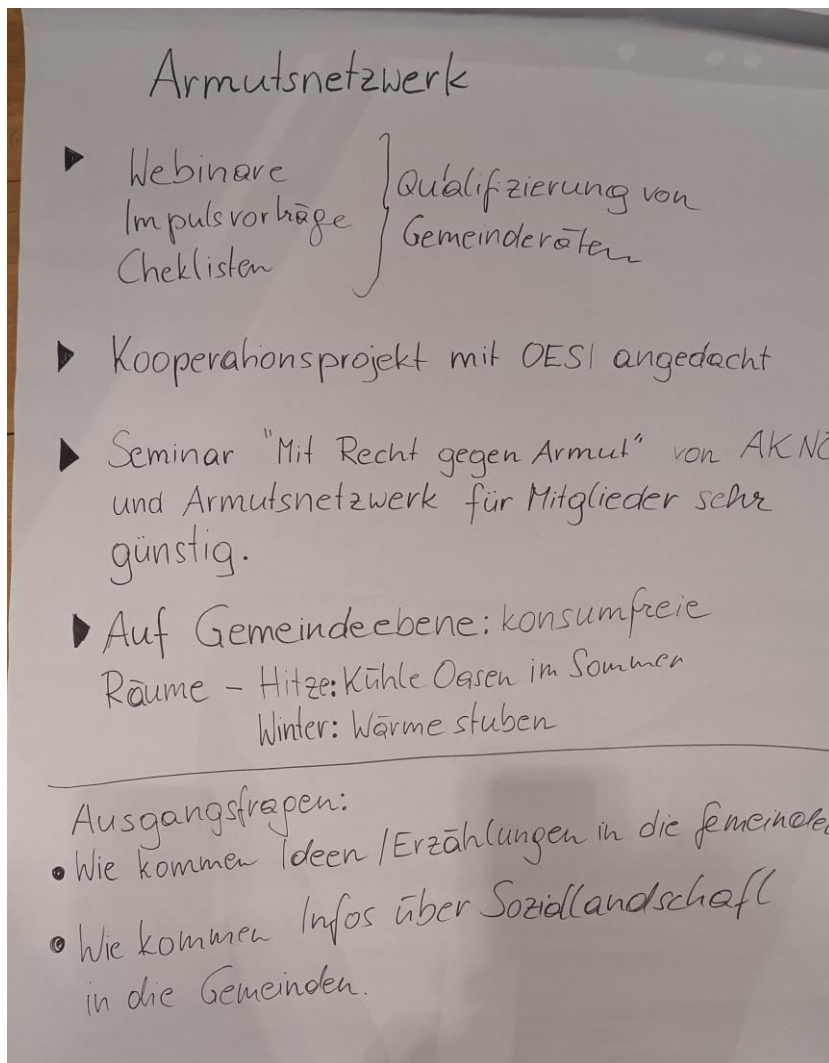 Armutsnetzwerk
▶ Webinare
Impulsvorträge
Cheklisten
} Qualifizierung von
Gemeinderäten
▶ Kooperationsprojekt mit OESI angedacht
▶ Seminar "Mit Recht gegen Armut" von AK NÖ
und Armutsnetzwerk für Mitglieder sehr
günstig.
▶ Auf Gemeindeebene: konsumfreie
Räume – Hitze: Kühle Oasen im Sommer
Winter: Wärmestuben
Ausgangsfragen:
• Wie kommen Ideen / Erzählungen in die Gemeinden
• Wie kommen Infos über Soziallandschaft
in die Gemeinden.